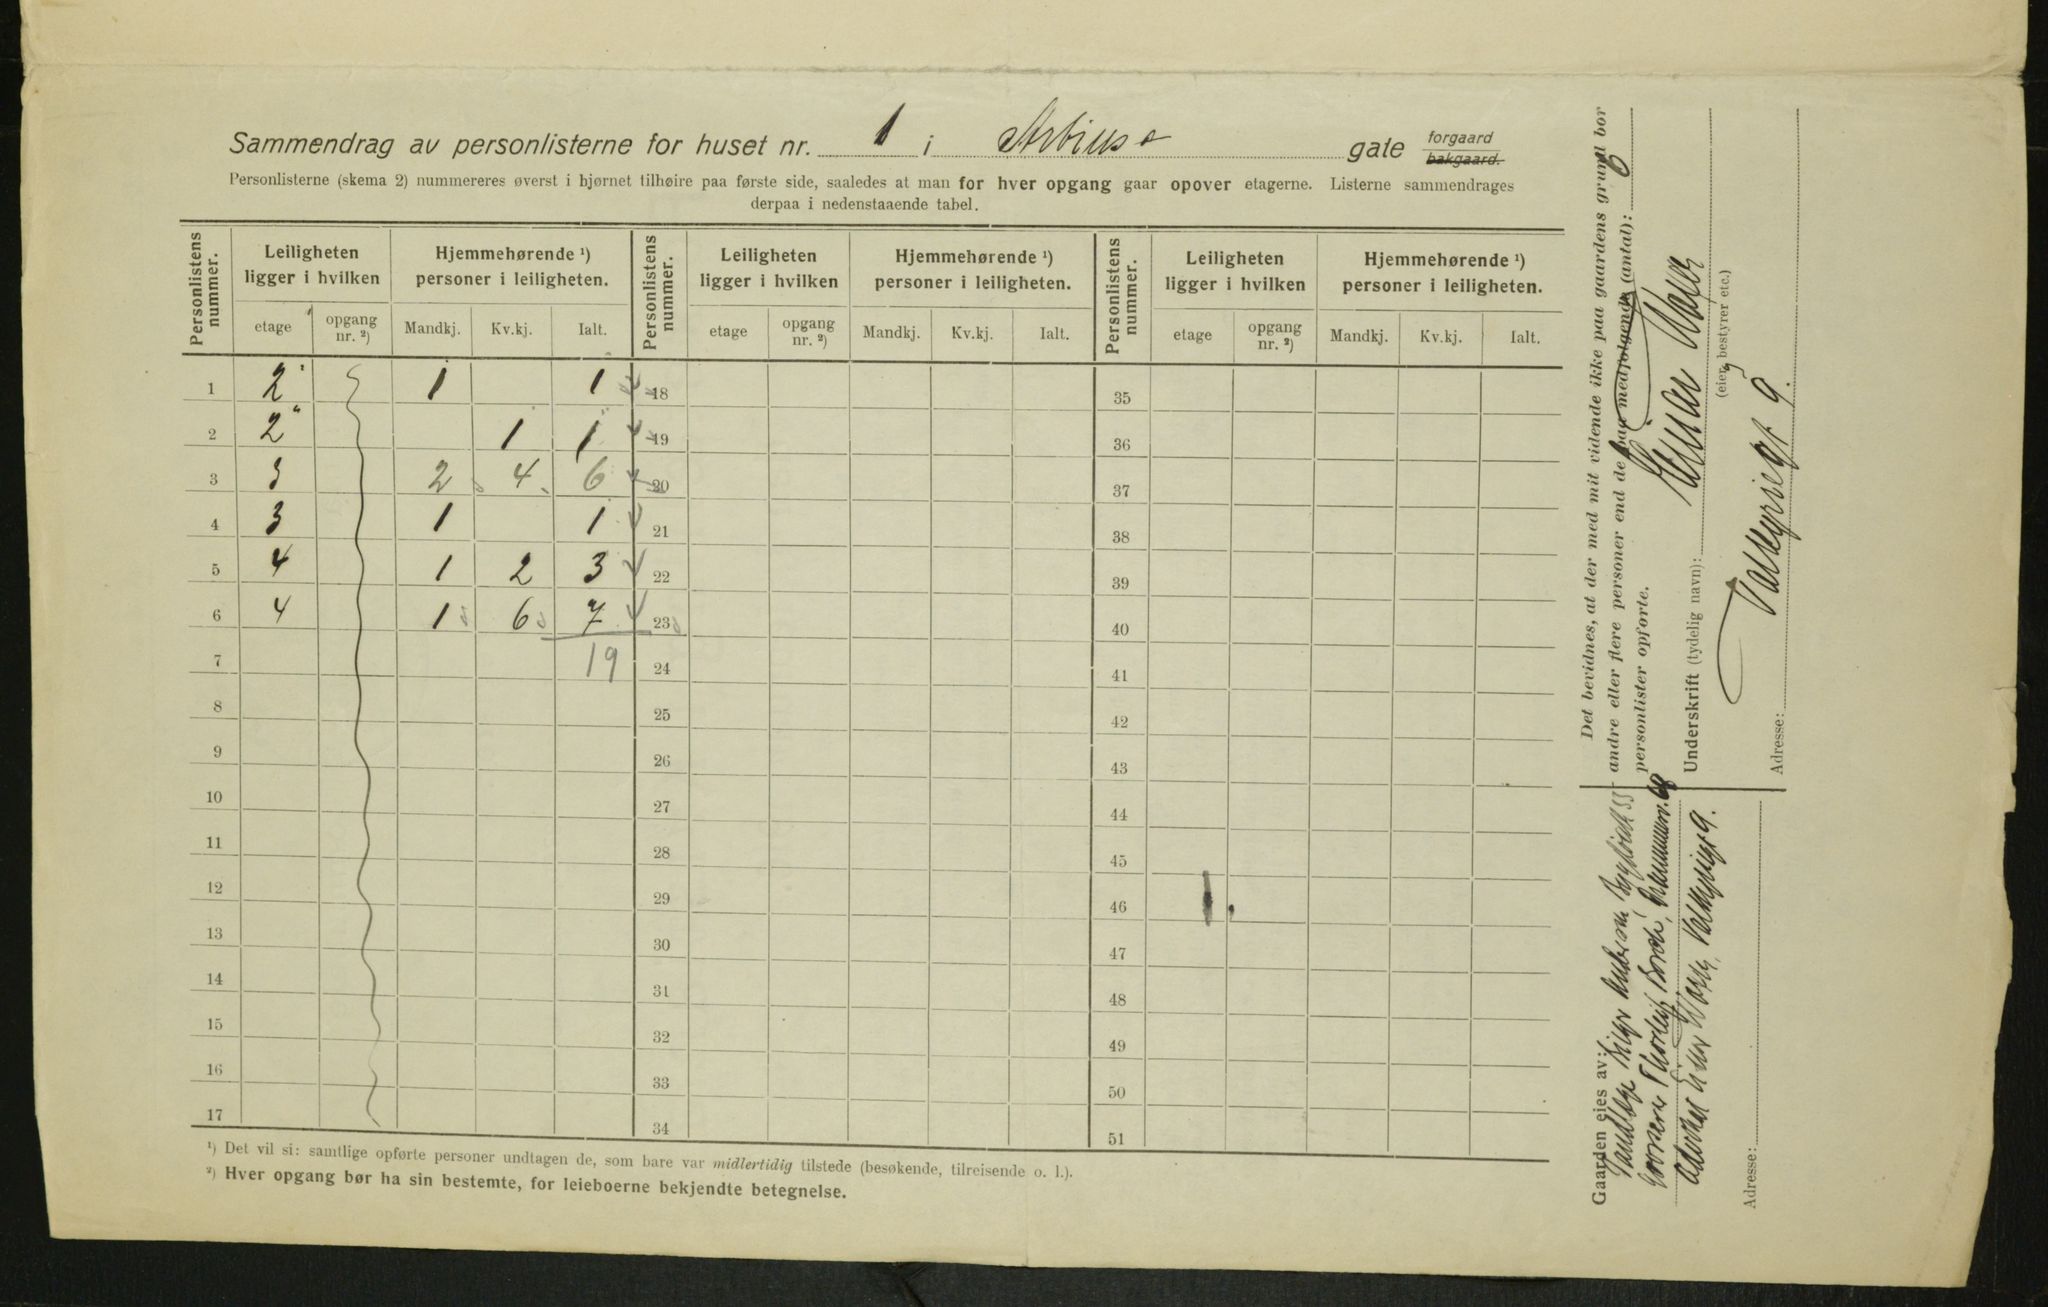 Sammendrag av personlisterne for huset nr. 1 i Arbins gate forgaard bakgaard.
Personlisterne (skema 2) nummereres øverst i hjørnet tilhøire paa første side, saaledes at man for hver opgang gaar opover etagerne. Listerne sammendrages
derpaa i nedenstaaende tabel.
Personlistens nummer. Leiligheten ligger i hvilken Hjemmehørende ¹) personer i leiligheten. Personlistens nummer. Leiligheten ligger i hvilken Hjemmehørende ¹) personer i leiligheten. Personlistens nummer. Leiligheten ligger i hvilken Hjemmehørende ¹) personer i leiligheten.
etage opgang nr. ²) Mandkj. Kv.kj. Ialt. etage opgang nr. ²) Mandkj. Kv.kj. Ialt. etage opgang nr. ²) Mandkj. Kv.kj. Ialt.
1 2 1 1 18 35
2 2 1 1 19 36
3 3 2 4 6 20 37
4 3 1 1 21 38
5 4 1 2 3 22 39
6 4 1 6 7 23 40
7 19 24 41
8 25 42
9 26 43
10 27 44
11 28 45
12 29 46
13 30 47
14 31 48
15 32 49
16 33 50
17 34 51
¹) Det vil si: samtlige opførte personer undtagen de, som bare var midlertidig tilstede (besøkende, tilreisende o. l.).
²) Hver opgang bør ha sin bestemte, for leieboerne bekjendte betegnelse.
Det bevidnes, at der med mit vidende ikke paa gaardens grund bor
andre eller flere personer end de paa medfølgende (antal): 6
personlister opførte.
Underskrift (tydelig navn): Einar
(eier, bestyrer etc.)
Adresse: Valkyriegt 9.
Gaarden eies av:
Tandlæge Birger
Thorleif
Einar Valkyriegt 9.
Adresse: